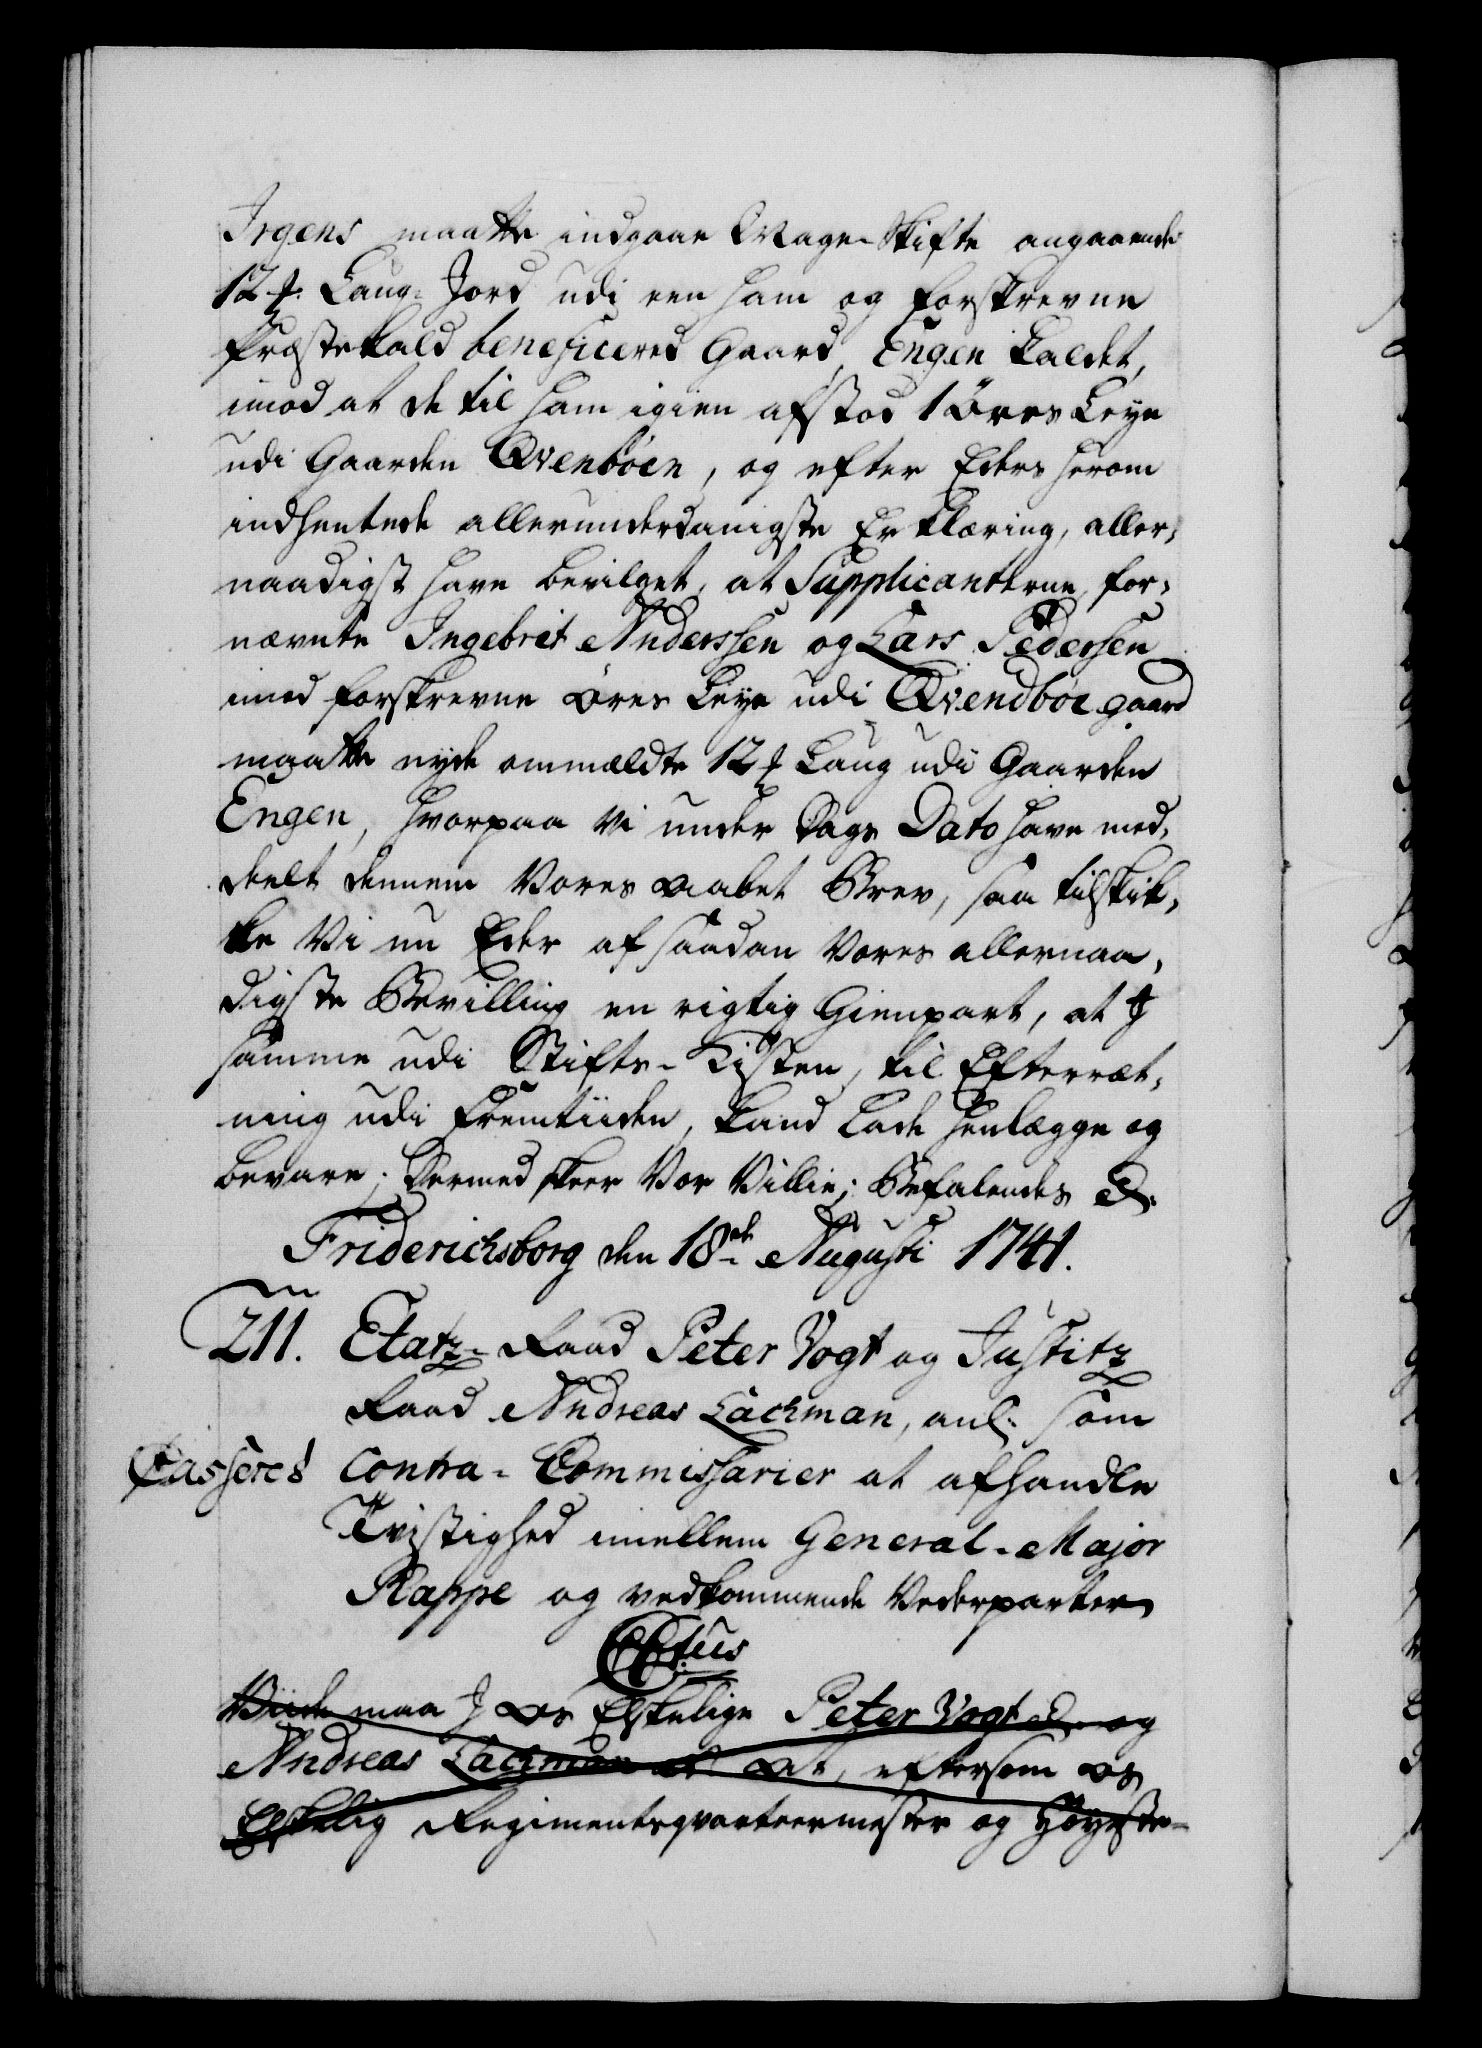 Irgens maatte indgaae Mage-Skifte angaaende
12 Laug-Jord udi een ham og forskrevne
Præstekald beneficered Gaard, Engen kaldet,
imod at de til ham igien afstod 1 Øres Leye
udi Gaarden Qvenböen, og efter Eders herom
indhentede allerunderdanigste Erklæring, aller-
naadigst have bevilget, at Supplicanterne, for-
nævnte Ingebret Anderssen og Lars Pedersen
imod forskrevne Øres Leye udi Qvendböe gaard
maatte nyde ommældte 12 Laug udi Gaarden
Engen, hvorpaa Vi under Dags Dato have med-
deelt dennem Vores aabet Brev, saa tilskik-
ke Vi nu Eder af saadan Vores allernaa-
digste Bevilling en rigtig Gienpart, at I
samme udi Stifts-Kisten, til Efterræt-
ning udi Fremtiiden, kand lade henlægge og
bevare; Dermed skeer Vor Villie; Befalendes &.
Friderichsborg den 18de Augusti 1741.
211. Etatz-Raad Peter Vogt og Justitz
Raad Andreas Lachman, anl: som
Casseres Contra-Commissarier at afhandle
Tvistighed imellem General-Major
Rappe og vedkommende Vederparter
C6tus
Viide maa I Os Elskelige Peter Vogt &. og
Andreas Lachman at, eftersom Os
Elskelig Regimentsqvarteermester og Höyeste-